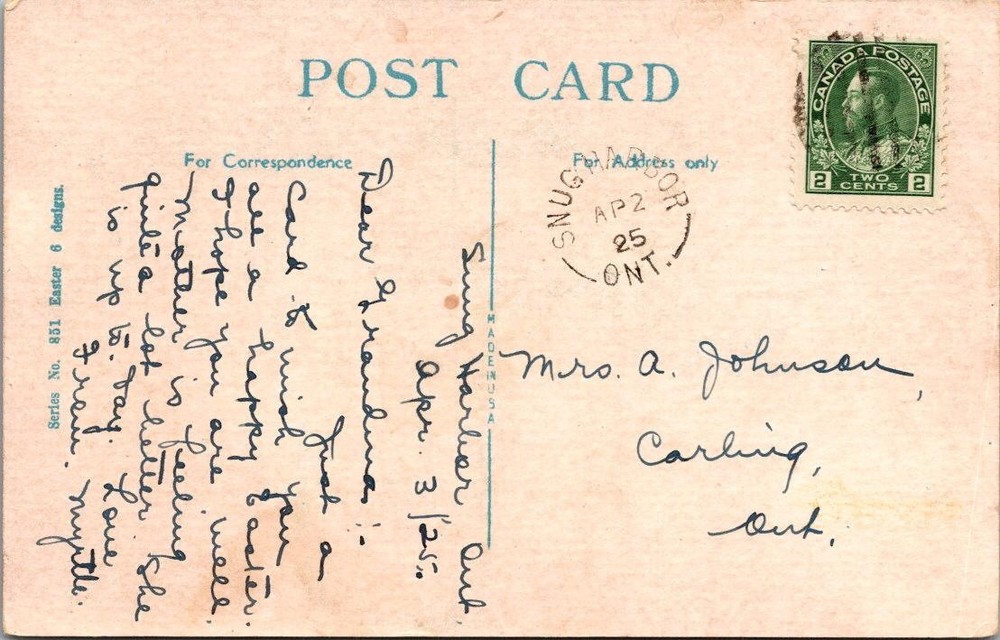 POST CARD
For Correspondence
For Address only
CANADA POSTAGE
2 TWO CENTS 2
SNUG HARBOR
AP 2
25
ONT.
Snug Harbor Ont.
Apr. 3/25.
Dear Grandma:
Just a
Card to wish you
all a happy Easter.
I hope you are well
Mother is feeling
quite a lot better she
is up to-day. Love
From. Myrtle.
Mrs. A. Johnson,
Carling,
Ont.
MADE IN USA
Series No. 851 Easter 6 designs.